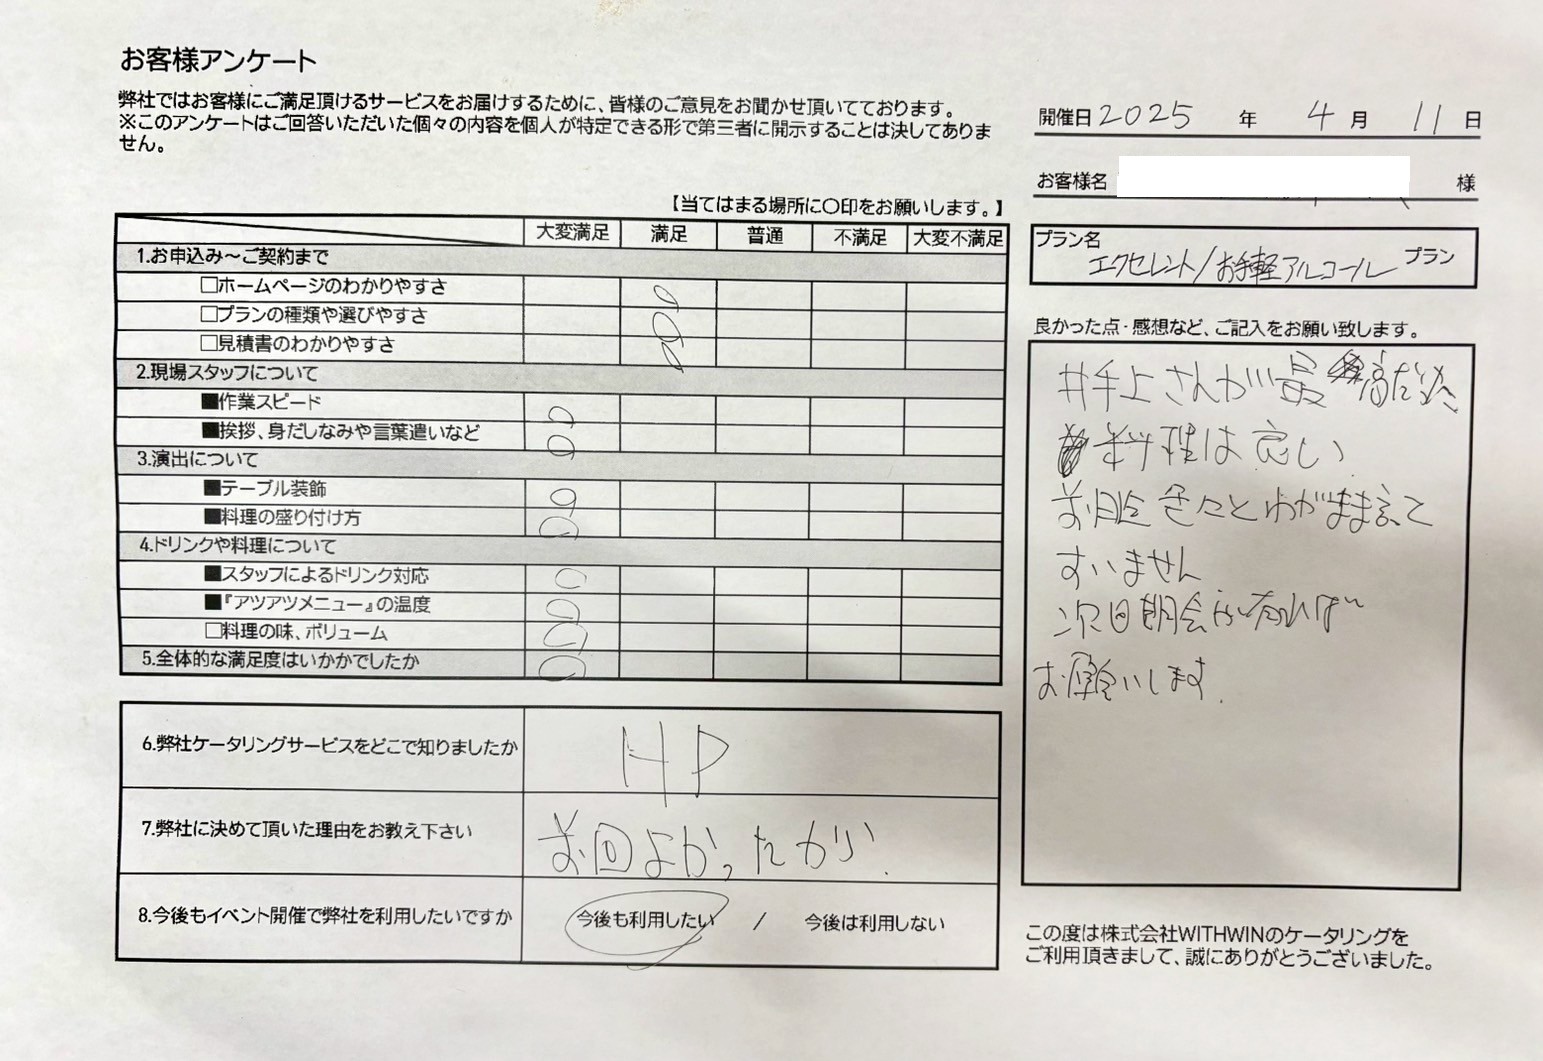 お客様アンケート
弊社ではお客様にご満足頂けるサービスをお届けするために、皆様のご意見をお聞かせ頂いてております。
※このアンケートはご回答いただいた個々の内容を個人が特定できる形で第三者に開示することは決してありま
せん。
開催日 2025 年 4 月 11 日
お客様名 様
【当てはまる場所に〇印をお願いします。】
プラン名
エクセレント/お手軽アルコール プラン
大変満足 満足 普通 不満足 大変不満足
1.お申込み～ご契約まで
□ホームページのわかりやすさ ○
□プランの種類や選びやすさ ○
□見積書のわかりやすさ ○
2.現場スタッフについて
■作業スピード ○
■挨拶、身だしなみや言葉遣いなど ○
3.演出について
■テーブル装飾 ○
■料理の盛り付け方 ○
4.ドリンクや料理について
■スタッフによるドリンク対応 ○
■『アツアツメニュー』の温度 ○
□料理の味、ボリューム ○
5.全体的な満足度はいかかでしたか ○
6.弊社ケータリングサービスをどこで知りましたか HP
7.弊社に決めて頂いた理由をお教え下さい 前回よかったから.
8.今後もイベント開催で弊社を利用したいですか 今後も利用したい / 今後は利用しない
良かった点・感想など、ご記入をお願い致します。
井手上さんが最高だった
料理は良い
前日迄色々とわがまま言って
すいません
次回機会が有れば
お願いします.
この度は株式会社WITHWINのケータリングを
ご利用頂きまして、誠にありがとうございました。